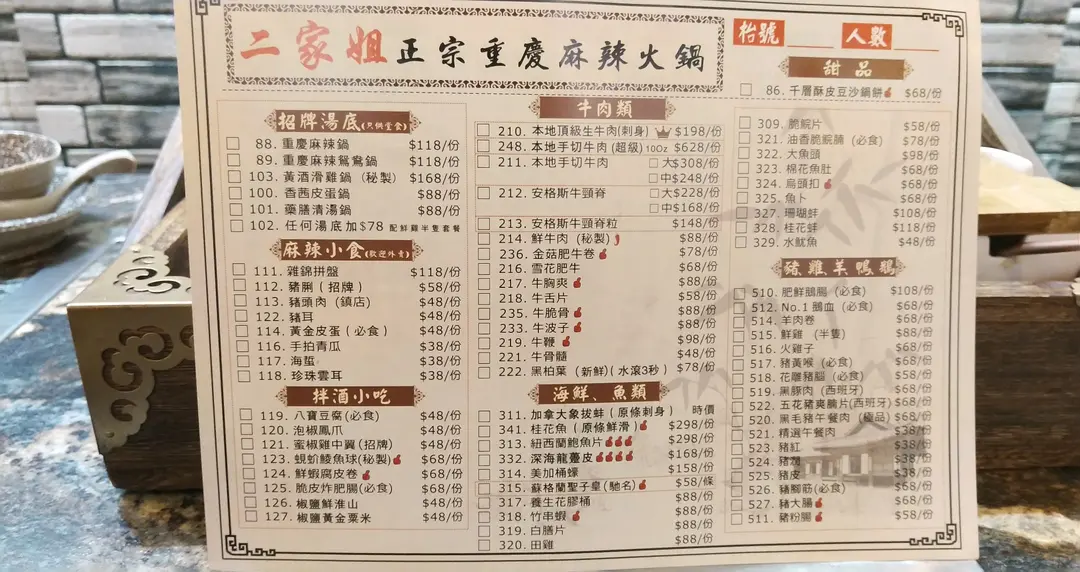 二家姐正宗重慶麻辣火鍋
枱號 人數
甜品
86. 千層酥皮豆沙鍋餅 $68/份
招牌湯底(只供堂食)
88. 重慶麻辣鍋 $118/份
89. 重慶麻辣鴛鴦鍋 $118/份
103. 黃酒滑雞鍋（秘製） $168/份
100. 香茜皮蛋鍋 $88/份
101. 藥膳清湯鍋 $88/份
102. 任何湯底加$78 配鮮雞半隻套餐
麻辣小食(歡迎外賣)
111. 雜錦拼盤 $118/份
112. 豬脷（招牌） $58/份
113. 豬頭肉（鎮店） $48/份
122. 豬耳 $48/份
114. 黃金皮蛋（必食） $48/份
116. 手拍青瓜 $38/份
117. 海蜇 $38/份
118. 珍珠雲耳 $38/份
拌酒小吃
119. 八寶豆腐(必食) $48/份
120. 泡椒鳳爪 $48/份
121. 蜜椒雞中翼(招牌) $48/份
123. 蜆蚧鯪魚球(秘製) $68/份
124. 鮮蝦腐皮卷 $68/份
125. 脆皮炸肥腸(必食) $68/份
126. 椒鹽鮮淮山 $48/份
127. 椒鹽黃金粟米 $48/份
牛肉類
210. 本地頂級生牛肉(刺身) $198/份
248. 本地手切牛肉(超級)10Oz $628/份
211. 本地手切牛肉 大$308/份
中$248/份
212. 安格斯牛頸脊 大$228/份
中$168/份
213. 安格斯牛頸脊粒 $148/份
214. 鮮牛肉（秘製） $88/份
236. 金菇肥牛卷 $78/份
216. 雪花肥牛 $68/份
217. 牛胸爽 $88/份
218. 牛舌片 $58/份
235. 牛脆骨 $88/份
233. 牛波子 $88/份
219. 牛鞭 $98/份
221. 牛骨髓 $48/份
222. 黑柏葉（新鮮)(水滾3秒） $78/份
海鮮、魚類
311. 加拿大象拔蚌（原條刺身） 時價
341. 桂花魚（原條鮮滑） $298/份
313. 紐西蘭鮑魚片 $298/份
332. 深海龍躉皮 $168/份
314. 美加桶蠔 $158/份
315. 蘇格蘭聖子皇(馳名) $58/條
317. 養生花膠桶 $88/份
318. 竹串蝦 $88/份
319. 白膳片 $88/份
320. 田雞 $88/份
309. 脆鯇片 $58/份
321. 油香脆鯇腩（必食） $78/份
322. 大魚頭 $98/份
323. 棉花魚肚 $68/份
324. 烏頭扣 $68/份
325. 魚卜 $68/份
327. 珊瑚蚌 $108/份
328. 桂花蚌 $118/份
329. 水魷魚 $48/份
豬雞羊鴨鵝
510. 肥鮮鵝腸（必食） $108/份
512. No.1 鵝血（必食） $68/份
514. 羊肉卷 $68/份
515. 鮮雞 （半隻） $88/份
516. 火雞子 $68/份
517. 豬黃喉（必食） $68/份
518. 花雕豬腦（必食） $58/份
519. 黑豚肉（西班牙） $88/份
522. 五花豬爽腩片(西班牙) $68/份
520. 黑毛豬午餐肉（極品） $68/份
521. 精選午餐肉 $38/份
523. 豬紅 $38/份
524. 豬潤 $38/份
525. 豬皮 $38/份
526. 豬腳筋(必食) $68/份
527. 豬大腸 $68/份
511. 豬粉腸 $58/份